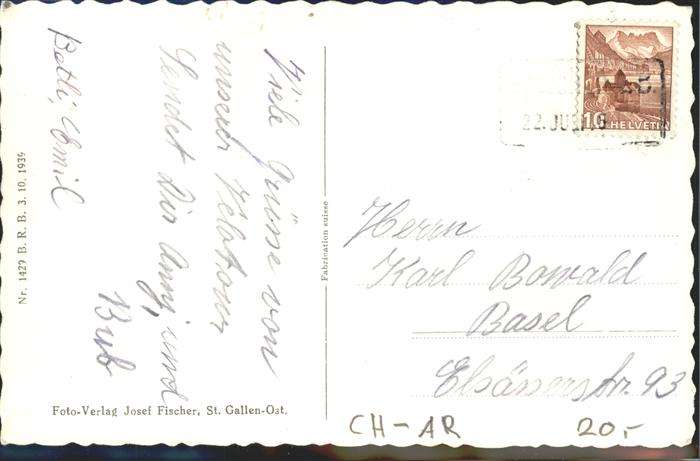 Viele Grüsse von
unserer Velotour
Sendet Dir Anny, und
Bub
Betli, Emil
Nr. 1429 B. R. B. 3. 10. 1939
Foto-Verlag Josef Fischer, St. Gallen-Ost.
Fabrication suisse
22. JUL
10 HELVETIA
Herrn
Karl Bowald
Basel
Elsässerstr. 93
CH-AR 20.-